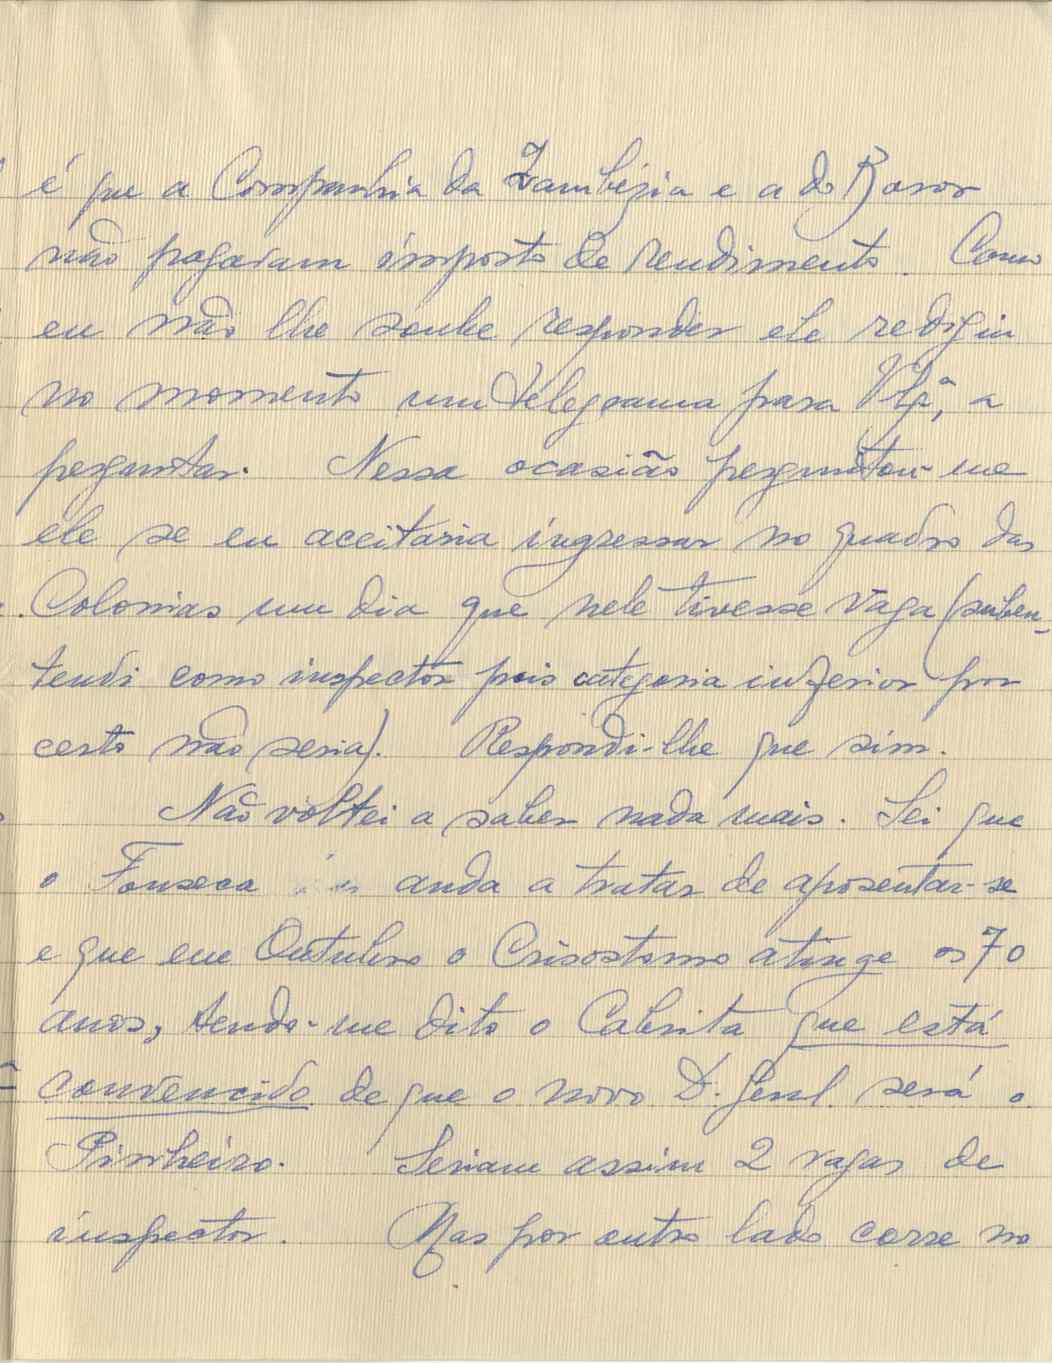 é que a Companhia da Zambézia e a do Boror
não pagaram imposto de rendimento. Como
eu não lhe soube responder ele redigiu
no momento um telegrama para V.ª, a
perguntar. Nessa ocasião perguntou-me
ele se eu aceitaria ingressar no quadro das
Colonias um dia que nele tivesse vaga (suben-
tendi como inspector pois categoria inferior por
certo não seria). Respondi-lhe que sim.
Não voltei a saber nada mais. Sei que
o Fonseca anda a tratar de aposentar-se
e que em Outubro o Crisostomo atinge os 70
anos, tendo-me dito o Cabrita que está
convencido de que o novo D. Geral será o
Pinheiro. Seriam assim 2 vagas de
inspector. Mas por outro lado corre no